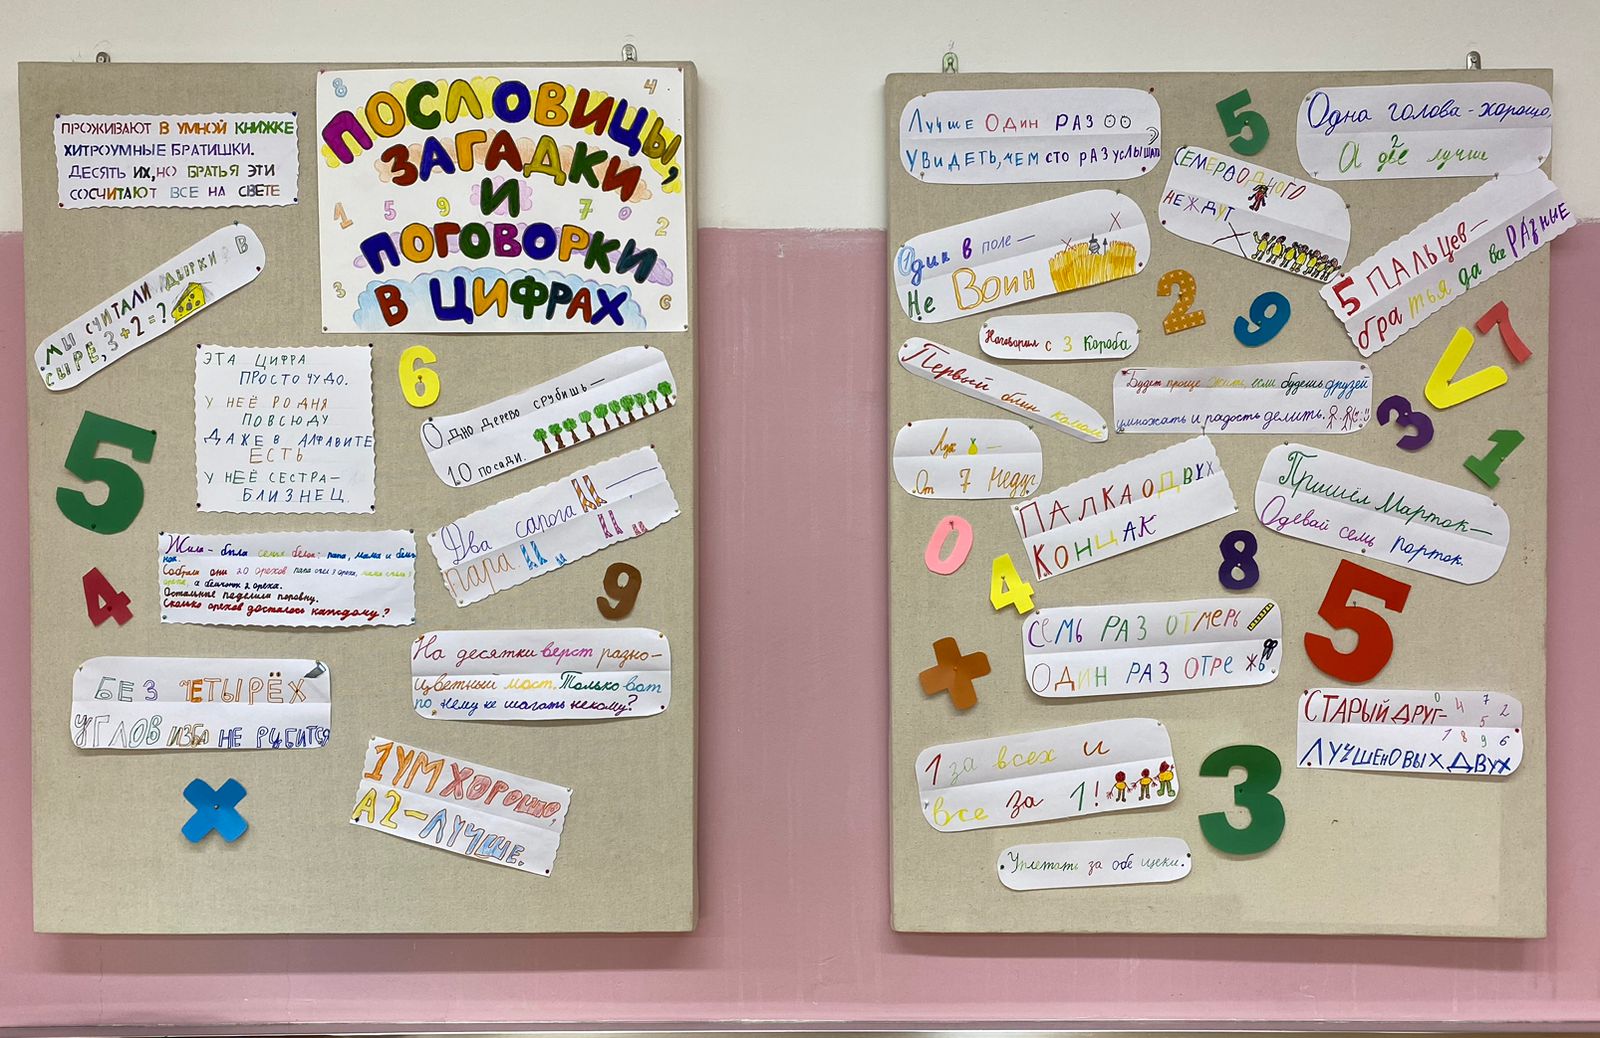 ПРОЖИВАЮТ В УМНОЙ КНИЖКЕ
ХИТРОУМНЫЕ БРАТИШКИ.
ДЕСЯТЬ ИХ, НО БРАТЬЯ ЭТИ
СОСЧИТАЮТ ВСЕ НА СВЕТЕ
8 4
ПОСЛОВИЦЫ,
ЗАГАДКИ
И
1 5 9 7 0 2
ПОГОВОРКИ
В ЦИФРАХ
3 6
МЫ СЧИТАЛИ ДЫРКИ В
СЫРЕ, 3+2=?
ЭТА ЦИФРА
ПРОСТО ЧУДО.
У НЕЁ РОДНЯ
ПОВСЮДУ
ДАЖЕ В АЛФАВИТЕ
ЕСТЬ
У НЕЁ СЕСТРА-
БЛИЗНЕЦ.
6
Одно дерево срубишь —
10 посади.
5
Два сапога —
пара.
Жила-была семья белок: папа, мама и бельчонок.
Собрали они 20 орехов папа съел 3 ореха, мама съела 3
ореха, а бельчонок 2 ореха.
Остальные поделили поровну.
Сколько орехов досталось каждому?
4
9
На десятки верст разно-
цветный мост. Только вот
по нему не шагать некому?
БЕЗ ЧЕТЫРЁХ
УГЛОВ ИЗБА НЕ РУБИТСЯ
1 УМ ХОРОШО,
А 2-ЛУЧШЕ.
Лучше один раз
увидеть, чем сто раз услышать
5
Одна голова - хорошо,
2
А две лучше
СЕМЕРО ОДНОГО
НЕ ЖДУТ
1
Один в поле —
Не Воин
5 ПАЛЬЦЕВ —
братья да все РАЗНЫЕ
2
9
7
Наговорил с 3 Короба
Первый блин комом
Будет проще жить, если будешь друзей
умножать и радость делить.
3
1
Лук —
От 7 Недуг
ПАЛКА О ДВУХ
КОНЦАХ
Пришёл Марток —
Одевай семь порток.
0
4
8
СЕМЬ РАЗ ОТМЕРЬ
ОДИН РАЗ ОТРЕЖЬ
5
СТАРЫЙ ДРУГ-
ЛУЧШЕ НОВЫХ ДВУХ
0 4 7 2
5
1 8 9 6
1 за всех и
все за 1!
3
Уплетать за обе щеки.